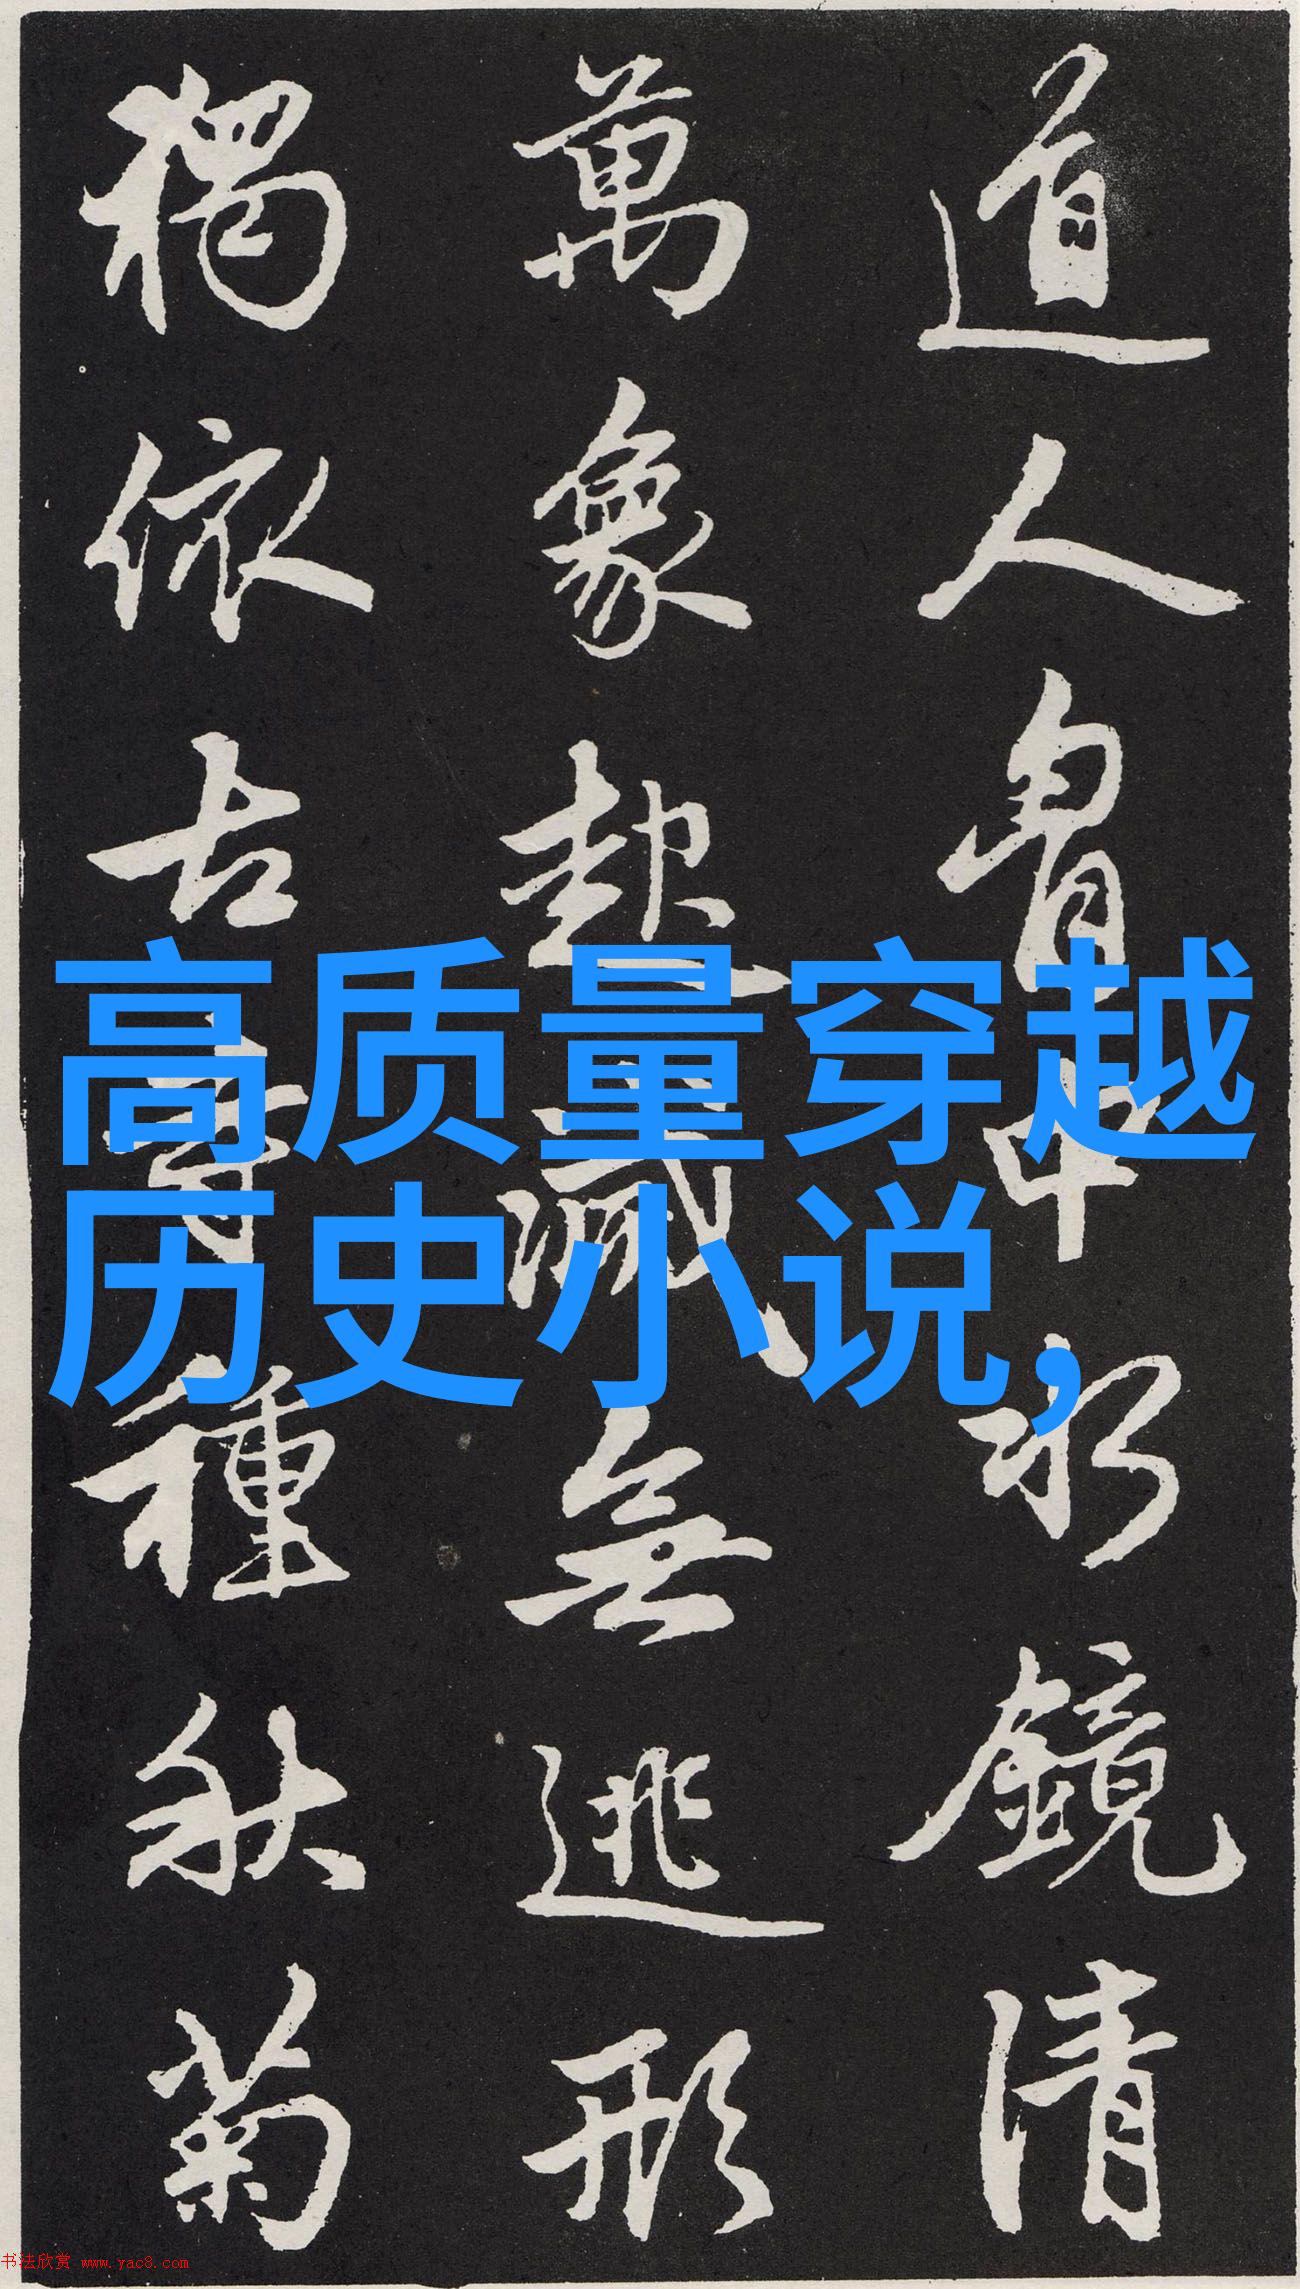 道人胷中水鏡清
萬象起滅無逃形
獨依古寺種秋菊
高质量穿越
历史小说,
书法欣赏 www.yac8.com